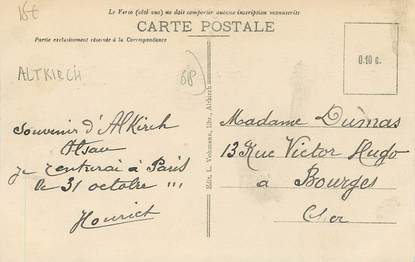 15€
Le Verso (côté vue) ne doit comporter aucune inscription manuscrite
CARTE POSTALE
Partie exclusivement réservée à la Correspondance
0.10 c.
ALTKIRCH
68
Souvenir d'Alkirch
je rentrerai à Paris
le 31 octobre
Edit. L. Vohmann, lib., Altkirch
Madame Dumas
13 Rue Victor Hugo
à Bourges
Cher